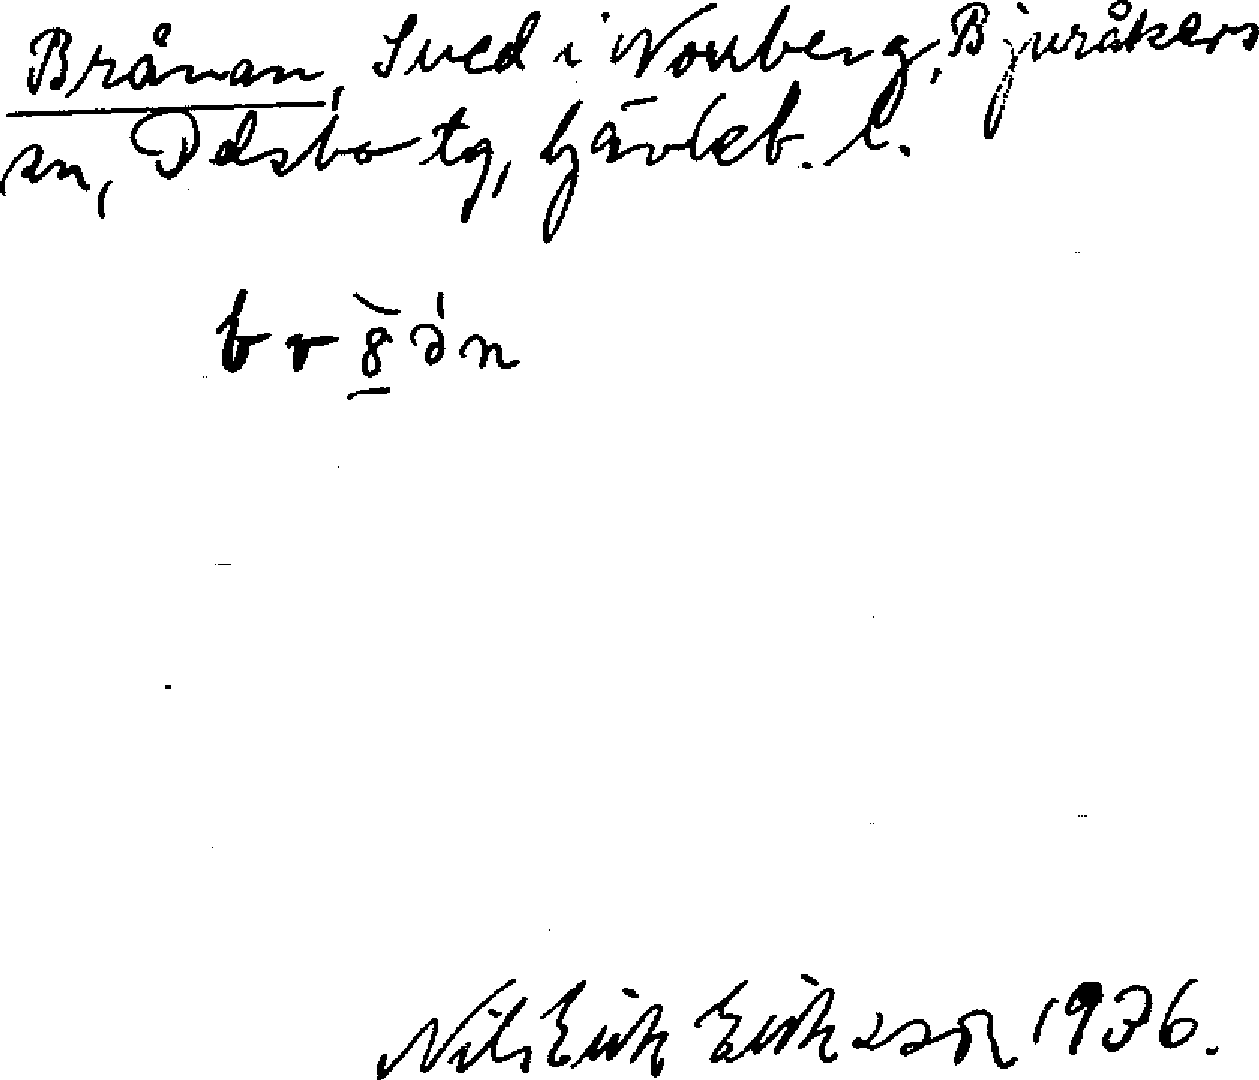 Brånan, Sved i Norrberg, Bjuråkers
sn, Delsbo tg, Gävleb. l.
Nils Erik Eriksson 1936.